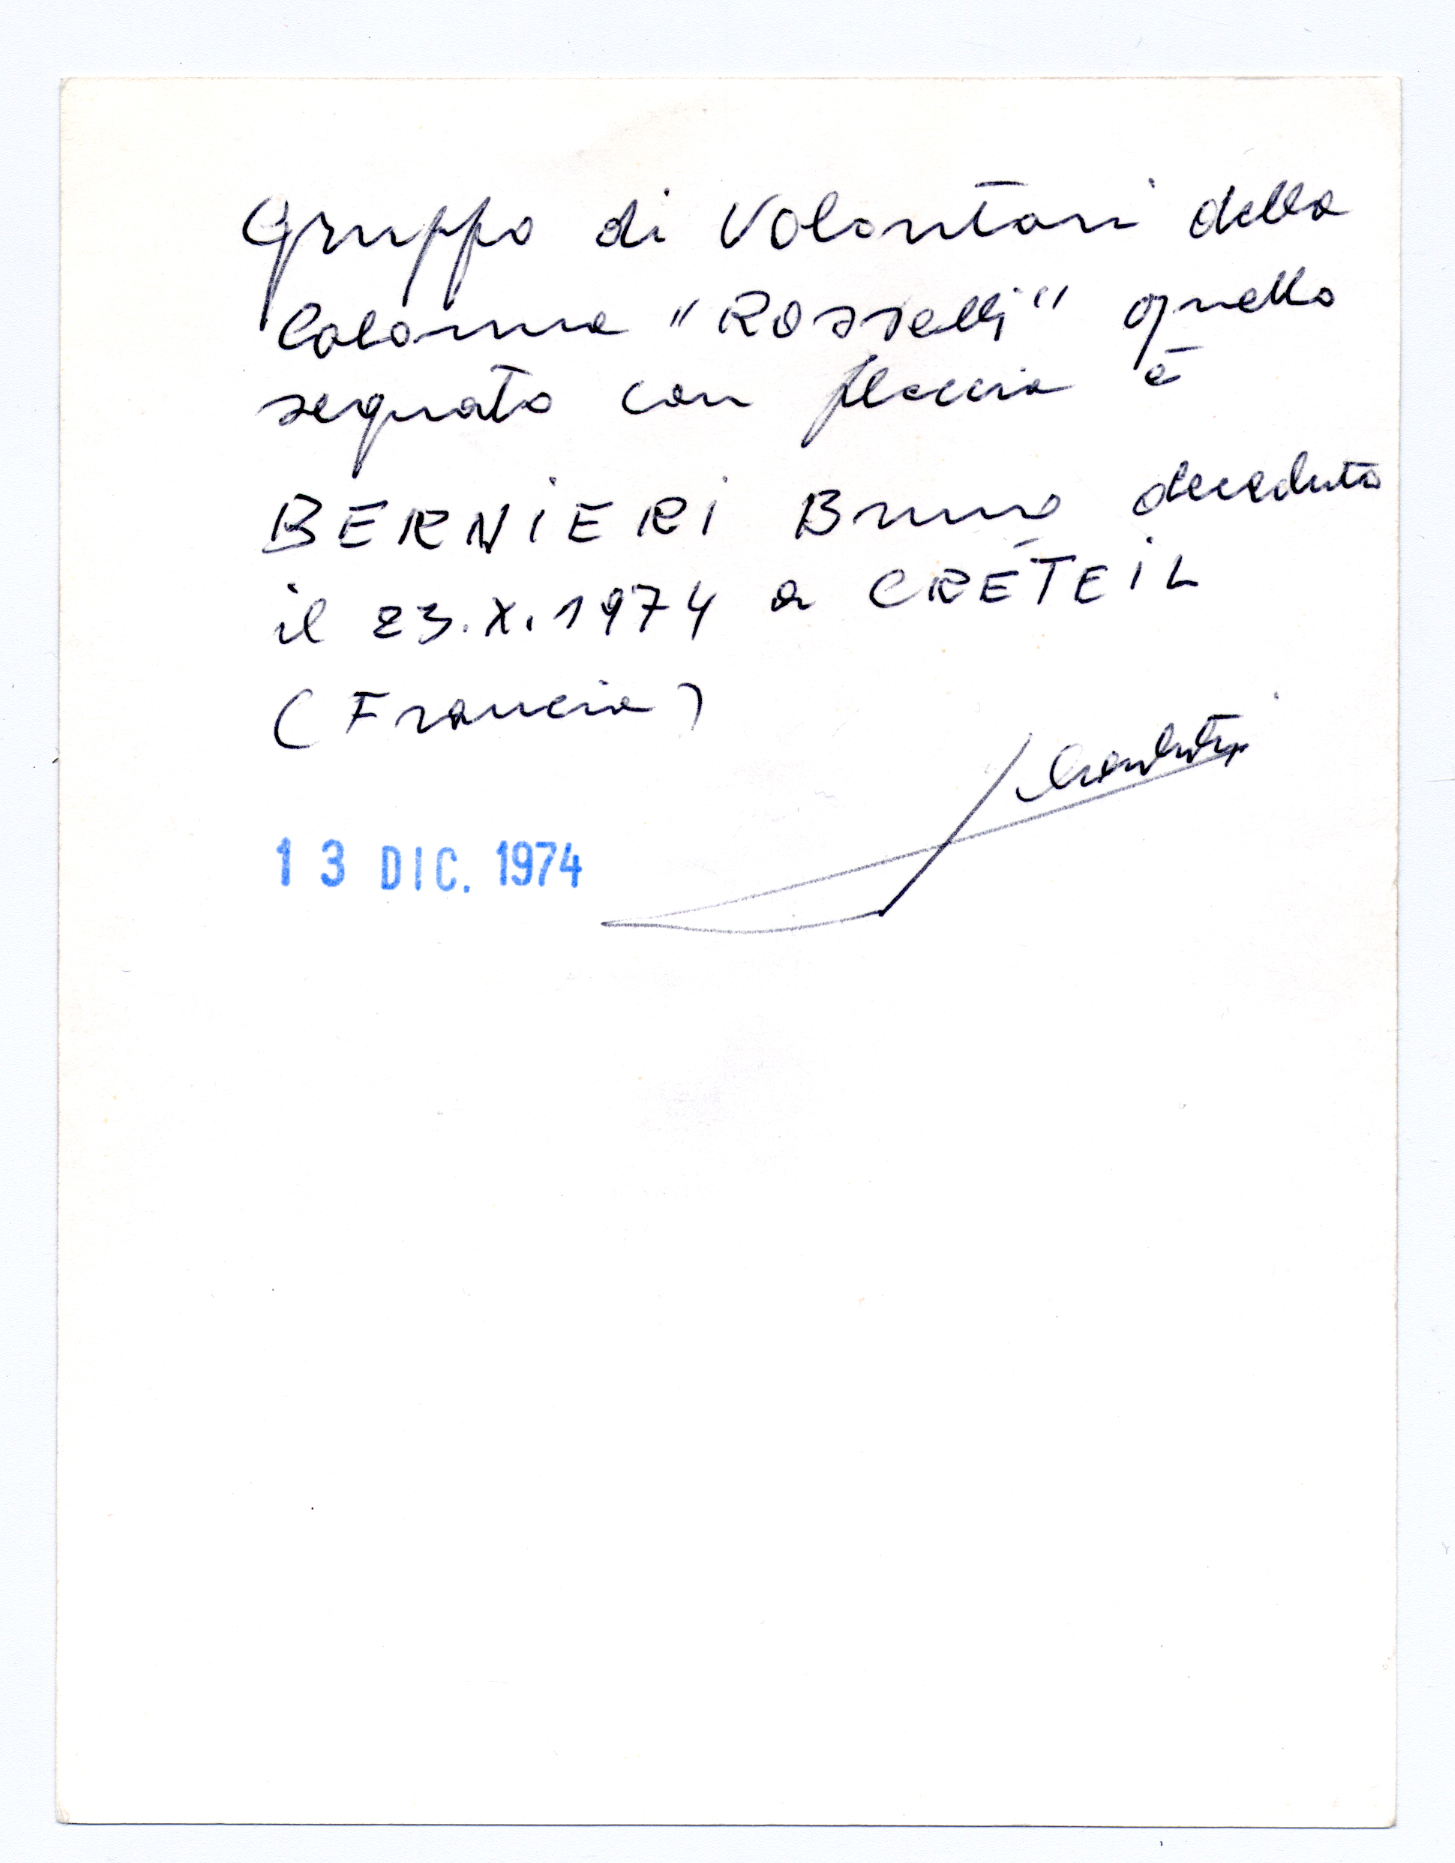 Gruppo di Volontari della
Colonna "Rosselli" quello
segnato con freccia è
BERNIERI Bruno deceduto
il 23.X.1974 a CRÉTEIL
(Francia)
13 DIC. 1974